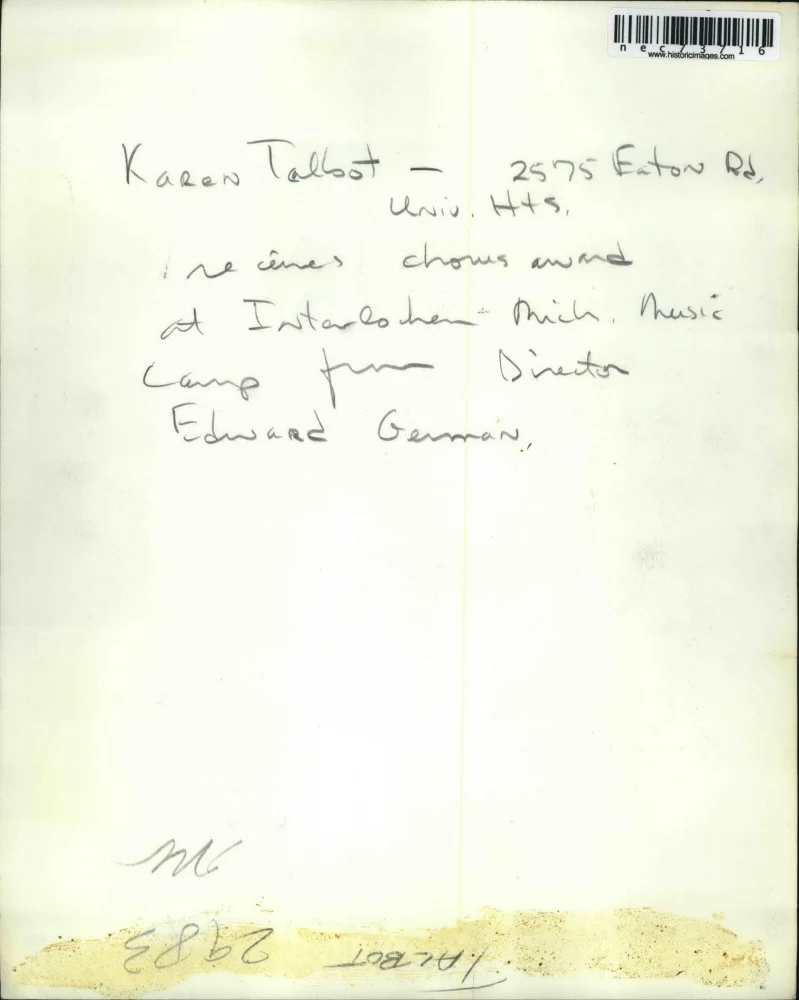 nec73716
www.historicimages.com
Karen Talbot — 2575 Eaton Rd,
Univ. Hts.
receives chorus award
at Interlochen Mich. Music
Camp from Director
Edward German,
TALBOT 2983